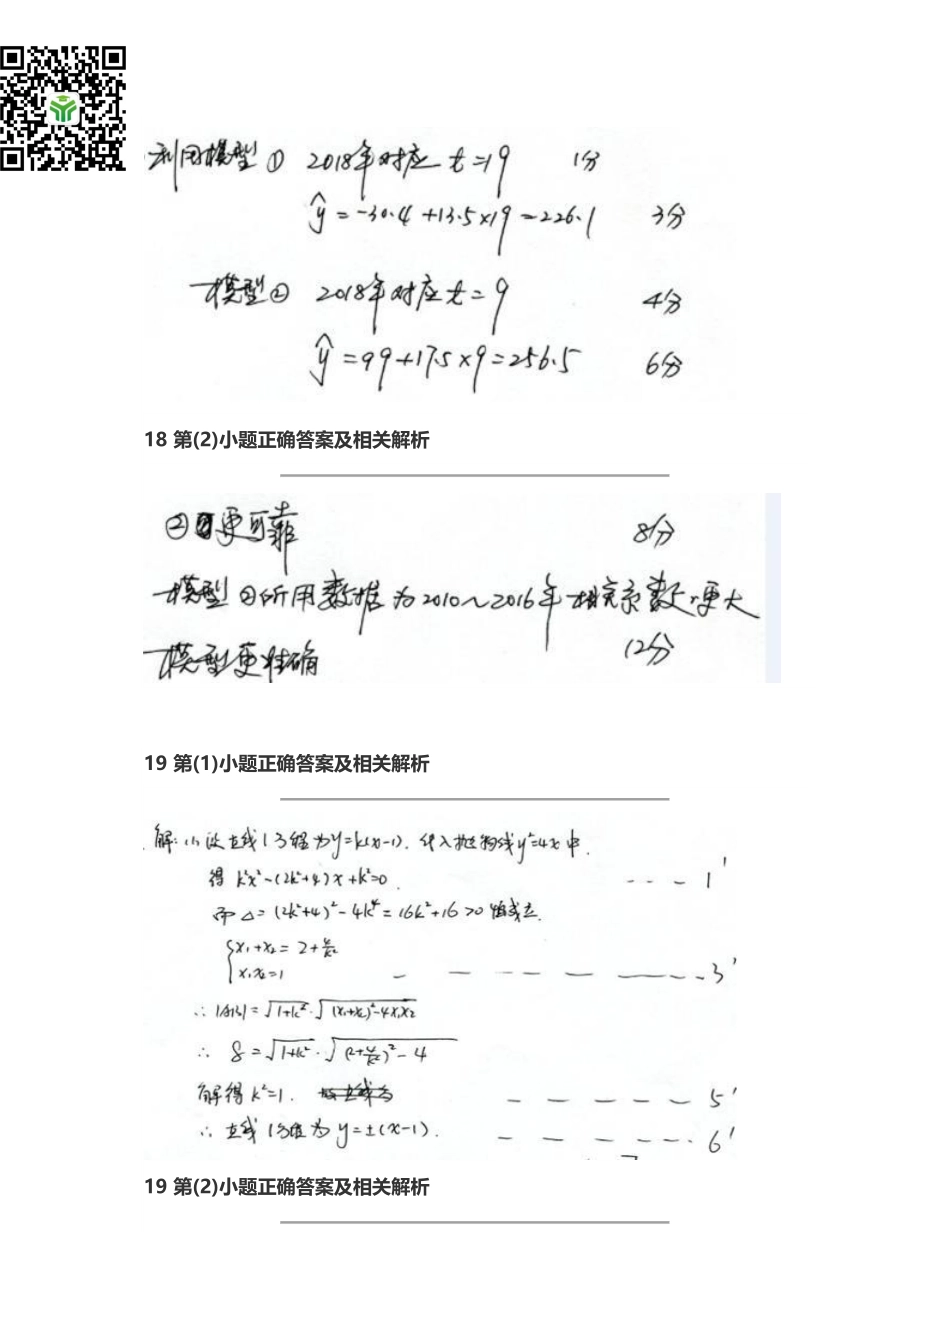 利用模型① 2018年对应 t=19 1分
ŷ=-30.4+13.5×19=226.1 3分
模型② 2018年对应 t=9 4分
ŷ=99+17.5×9=256.5 6分
18 第(2)小题正确答案及相关解析
② 更可靠 8分
模型②所用数据为2010~2016年 相关系数更大
模型更准确 12分
19 第(1)小题正确答案及相关解析
解:(1)设直线l方程为y=k(x-1).代入抛物线y²=4x中.
得 k²x²-(2k²+4)x+k²=0. --- 1'
而 △=(2k²+4)²-4k⁴=16k²+16>0 恒成立.
{x₁+x₂=2+4/k²
x₁x₂=1 - - - - - - - 3'
∴ |AB|=√1+k²·√(x₁+x₂)²-4x₁x₂
∴ 8=√1+k²·√(2+4/k²)²-4
解得 k²=1. - - - - - 5'
∴ 直线l方程为 y=±(x-1). - - - - - 6'
19 第(2)小题正确答案及相关解析